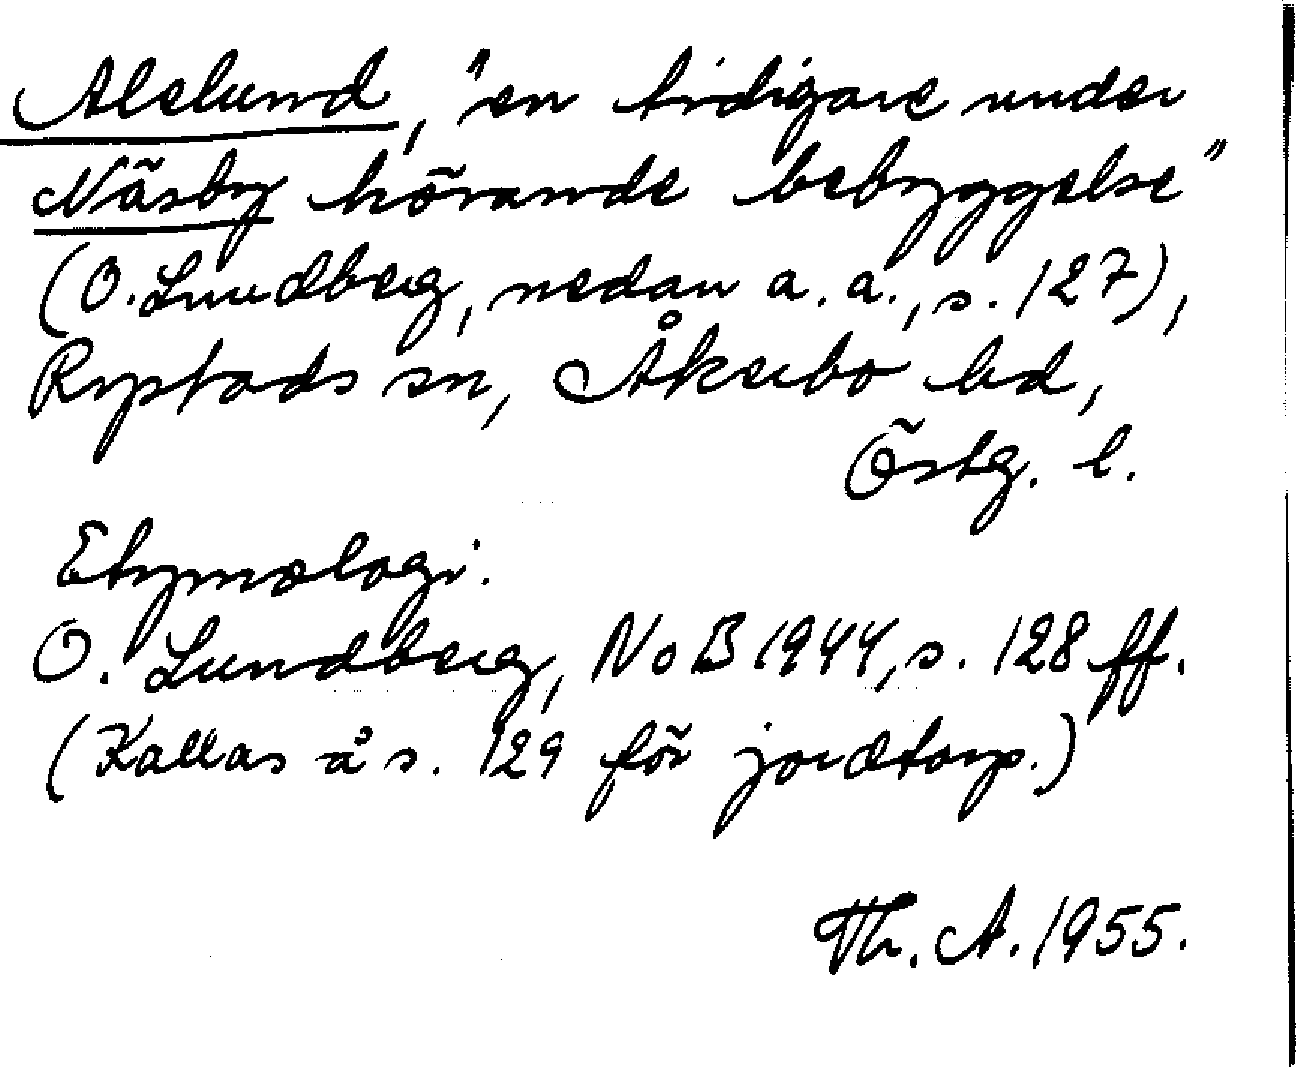 Alslund, "en tidigare under
Näsby hörande bebyggelse"
(O. Lundberg, nedan a. a., s. 127),
Rystads sn, Åkerbo hd,
Östg. l.
Etymologi.
O. Lundberg, NoB 1944, s. 128 ff.
(Kallas å s. 129 för jordtorp.)
Th. A. 1955.